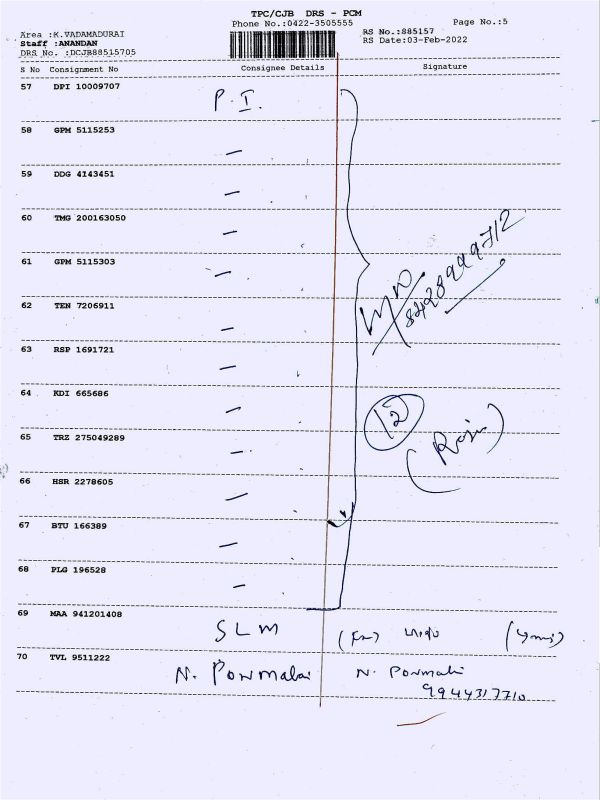 TPC/CJB DRS - PCM
Phone No.:0422-3505555
Page No.:5
Area :K.VADAMADURAI
RS No.:885157
Staff :ANANDAN
RS Date:03-Feb-2022
DRS No. :DCJB88515705
S No Consignment No Consignee Details Signature
57 DPI 10009707
P. I.
58 GPM 5115253
59 DDG 4143451
60 TMG 200163050
61 GPM 5115303
8428999712
62 TEN 7206911
63 RSP 1691721
64 KDI 665686
12
65 TRZ 275049289
66 HSR 2278605
67 BTU 166389
68 PLG 196528
69 MAA 941201408
SLM
70 TVL 9511222
N. Ponmalai N. Ponmalai
9944317710